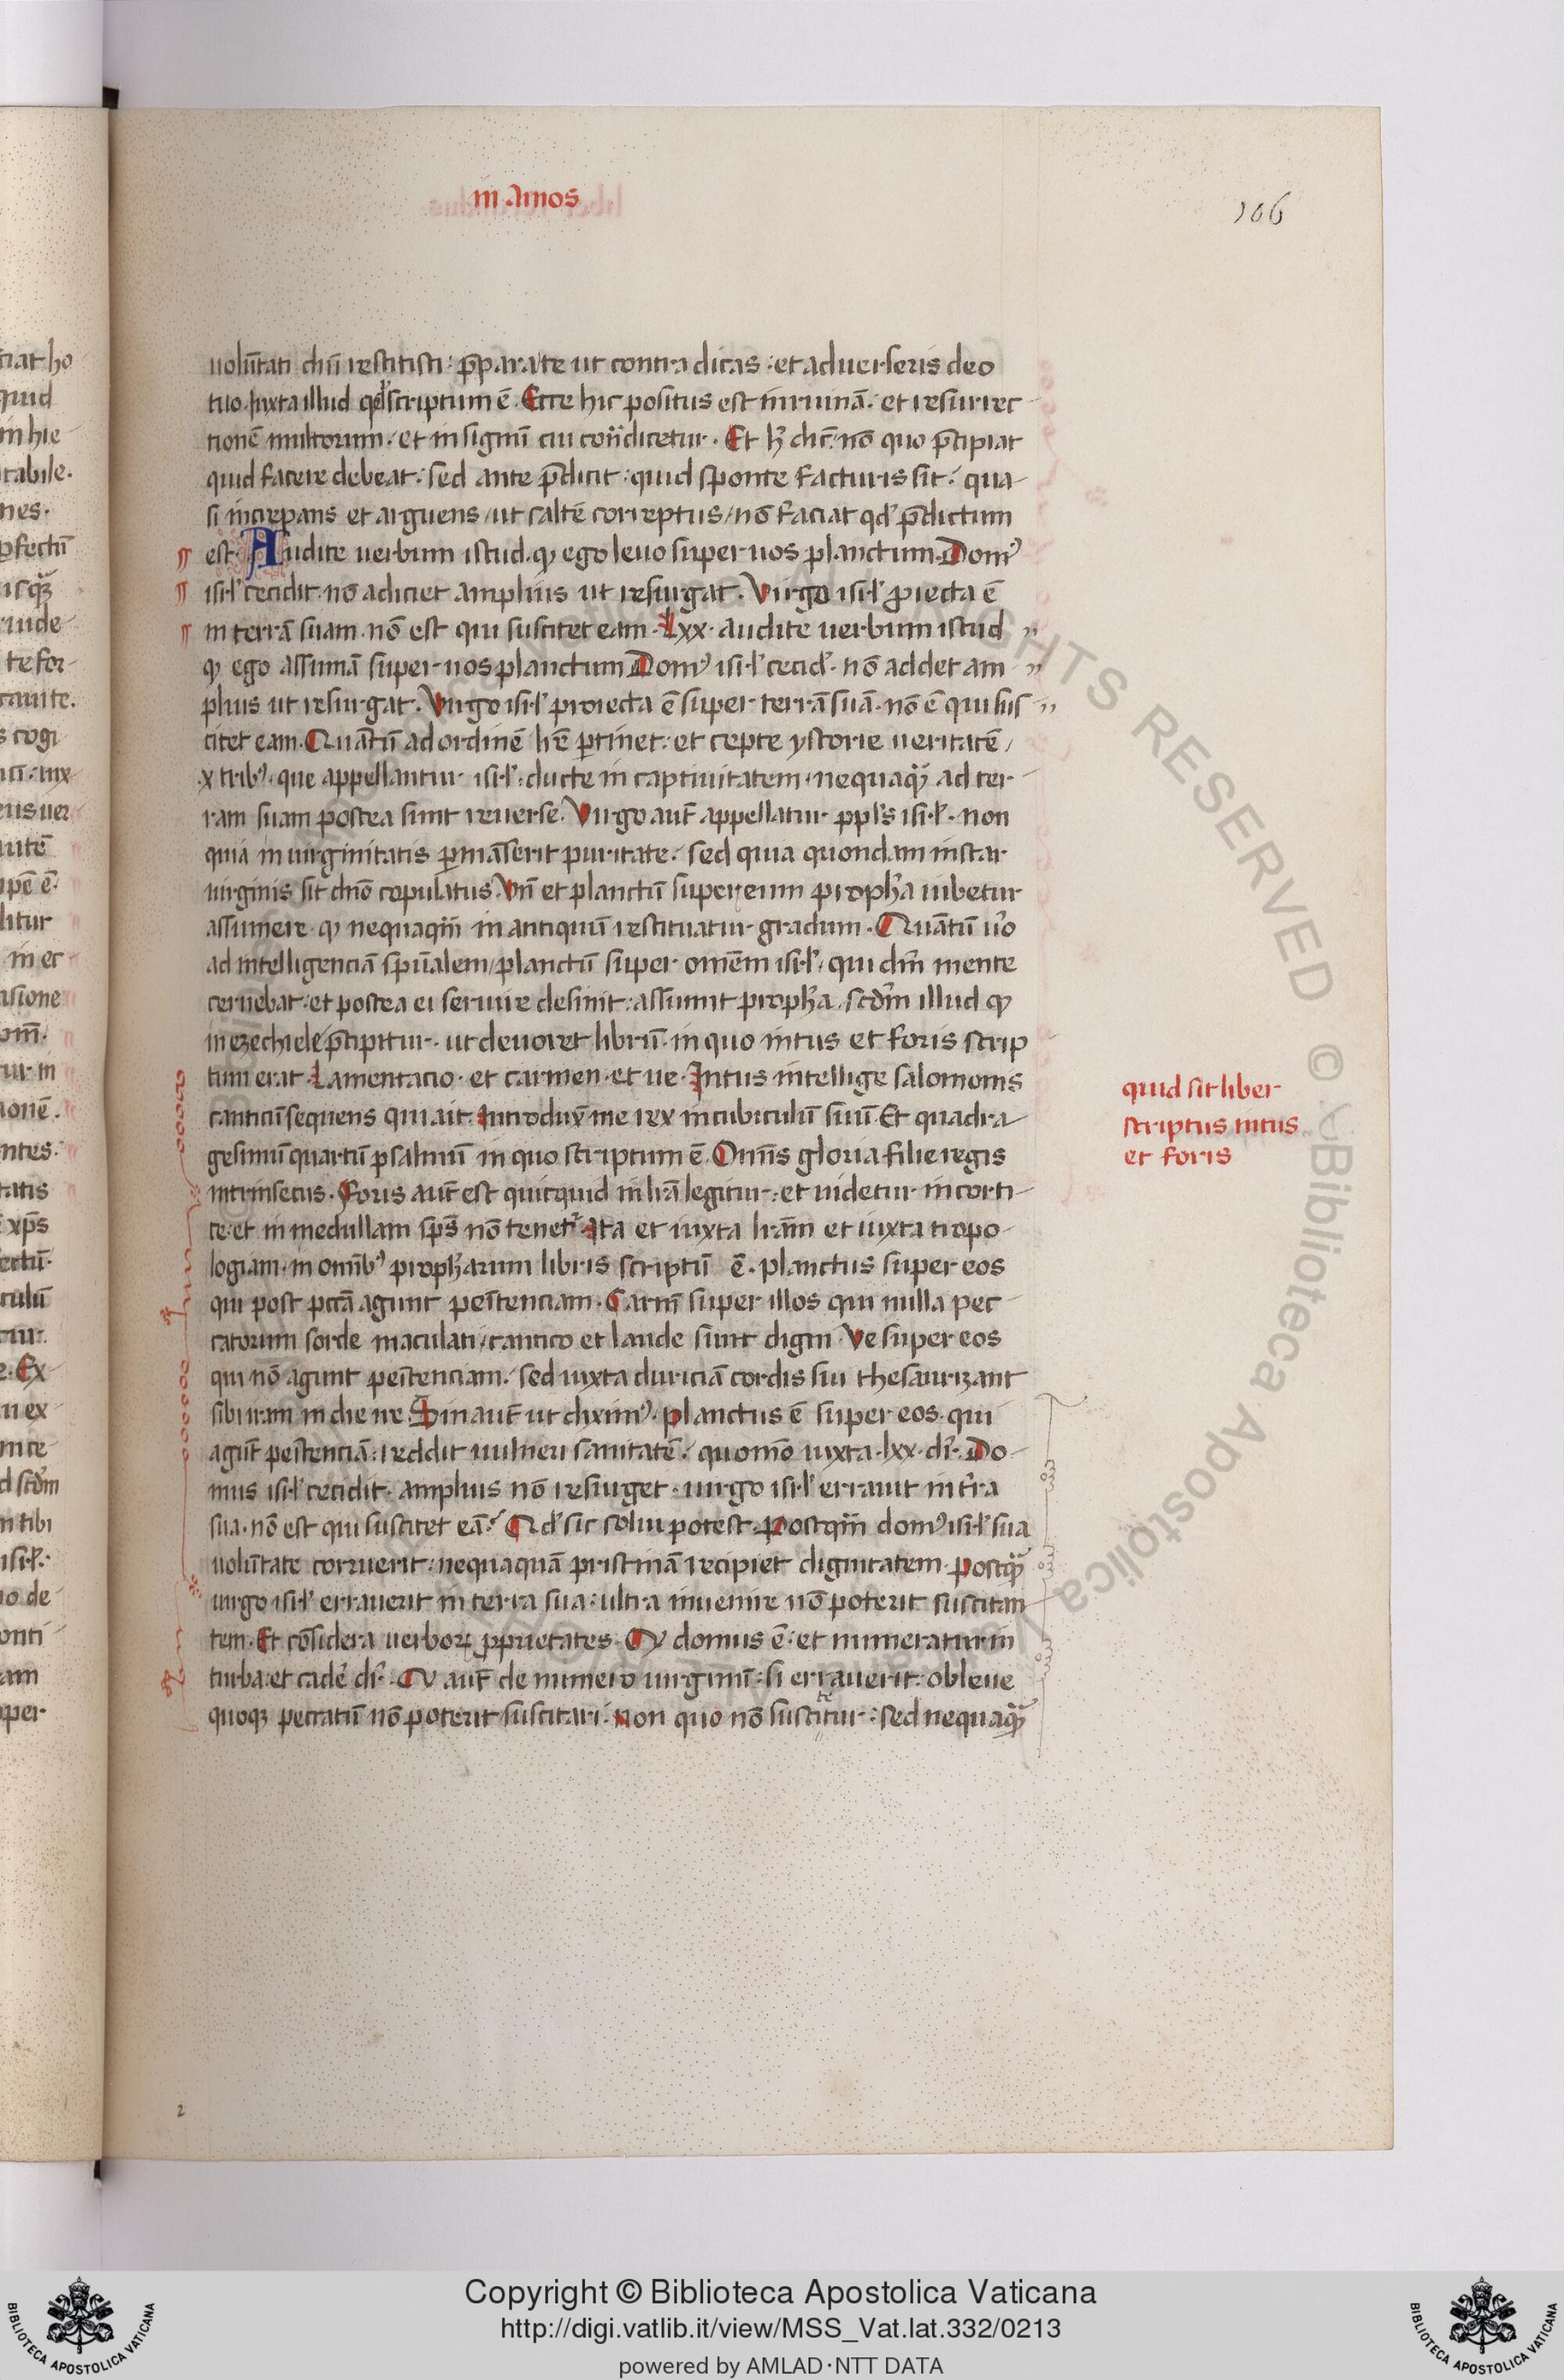 in Amos
106
uolūtati dni͞ restitisti: p̄parate ut contradicas: et aduerseris deo
tuo. Iuxta illud qd' scriptum ē. Ecce hic positus est in ruinā: et resurrec-
tionē multorum: et in signū cui cont̄dicetur. Et h̨ dic̄: nō quo p̄cipiat
quid facere debeat: sed ante p̄dicit: quid sponte facturis sit: qua-
si increpans et arguens / ut saltē correptus / nō faciat qd' p̄dictum
est. Audite uerbum istud. qͥ ego leuo super uos planctum. Domꝰ
isr̄l' cecidit. nō adiciet amplius ut resurgat. Virgo isr̄l' proiecta ē
in terrā suam. nō est qui suscitet eam. Lxx. audite uerbum istud
qͥ ego assumā super uos planctum Domꝰ isr̄l' cecid'. nō addet am
plius ut resurgat. Virgo isr̄l' proiecta ē super terrā suā. nō ē qui sus
citet eam. Quātū ad ordinē h̄c ꝑtinet: et cepte ystorie ueritatē /
x tribꝰ. que appellantur isr̄l': ducte in captiuitatem: nequaq̄ ad ter-
ram suam postea sunt reuerse. Virgo aut̄ appellatur ppl's isr̄l'. non
quia in uirginitatis ꝑmāserit puritate: sed quia quondam instar
uirginis sit dnō copulatus. Vn̄ et planctū super eum proph̄a iubetur
assumere. qͥ nequaqm̄ in antiquū restituatur gradum. Quātū ūo
ad intelligenciā spūalem / planctū super omēm isr̄l', qui dm̄ mente
cernebat: et postea ei seruire desinit: assumit proph̄a. scdm̄ illud qͥ
in ezechiele p̄cipitur. ut deuoret librū. in quo intus et foris scrip
tum erat. Lamentacio. et carmen. et ue. Intus intellige salomonis
canticū sequens qui ait. Introdux̄ me rex in cubiculū suū. Et quadra-
gesimū quartū psalmū in quo scriptum ē. Omīs gloria filie regis
intrinsecus. Foris aut̄ est quicquid in lrā legitur: et uidetur in corti-
ce: et in medullam spūs nō tenet'. Ita et iuxta lrām et iuxta tropo-
logiam. in omībꝰ proph̄arum libris scriptū ē. planctus super eos
qui post pccā agunt penītenciam. Carm̄ super illos qui nulla pec-
catorum sorde maculati, cantico et laude sunt digni. Ve super eos
qui nō agunt penītenciam: sed iuxta duriciā cordis sui thesaurizant
sibi iram in die ire. Sin aut̄ ut diximꝰ. planctus ē super eos. qui
agūt penītenciā: reddit uulneri sanitatē: quomō iuxta. lxx. dr̄. Do-
mus isr̄l' cecidit. amplius nō resurget. uirgo isr̄l' errauit in tr̄a
sua. nō est qui suscitet eā? Qd' sic solui potest. Postqm̄ domꝰ isr̄l' sua
uolūtate corruerit: nequaquā pristinā recipiet dignitatem. postq̄
uirgo isr̄l' errauerit in terra sua: ultra inuenire nō poterit suscitan
tem. Et cōsidera uerboꝝ pprietates. Qͥ domus ē: et numeratur in
turba: et cadē dr̄. Qͥ aut̄ de numero uirginū: si errauerit: obleue
quoqꝫ peccatū nō poterit suscitari. non quo nō suscitetur: sed nequaq̄
quid sit liber
scriptus intus
et foris
Copyright © Biblioteca Apostolica Vaticana
http://digi.vatlib.it/view/MSS_Vat.lat.332/0213
powered by AMLAD·NTT DATA